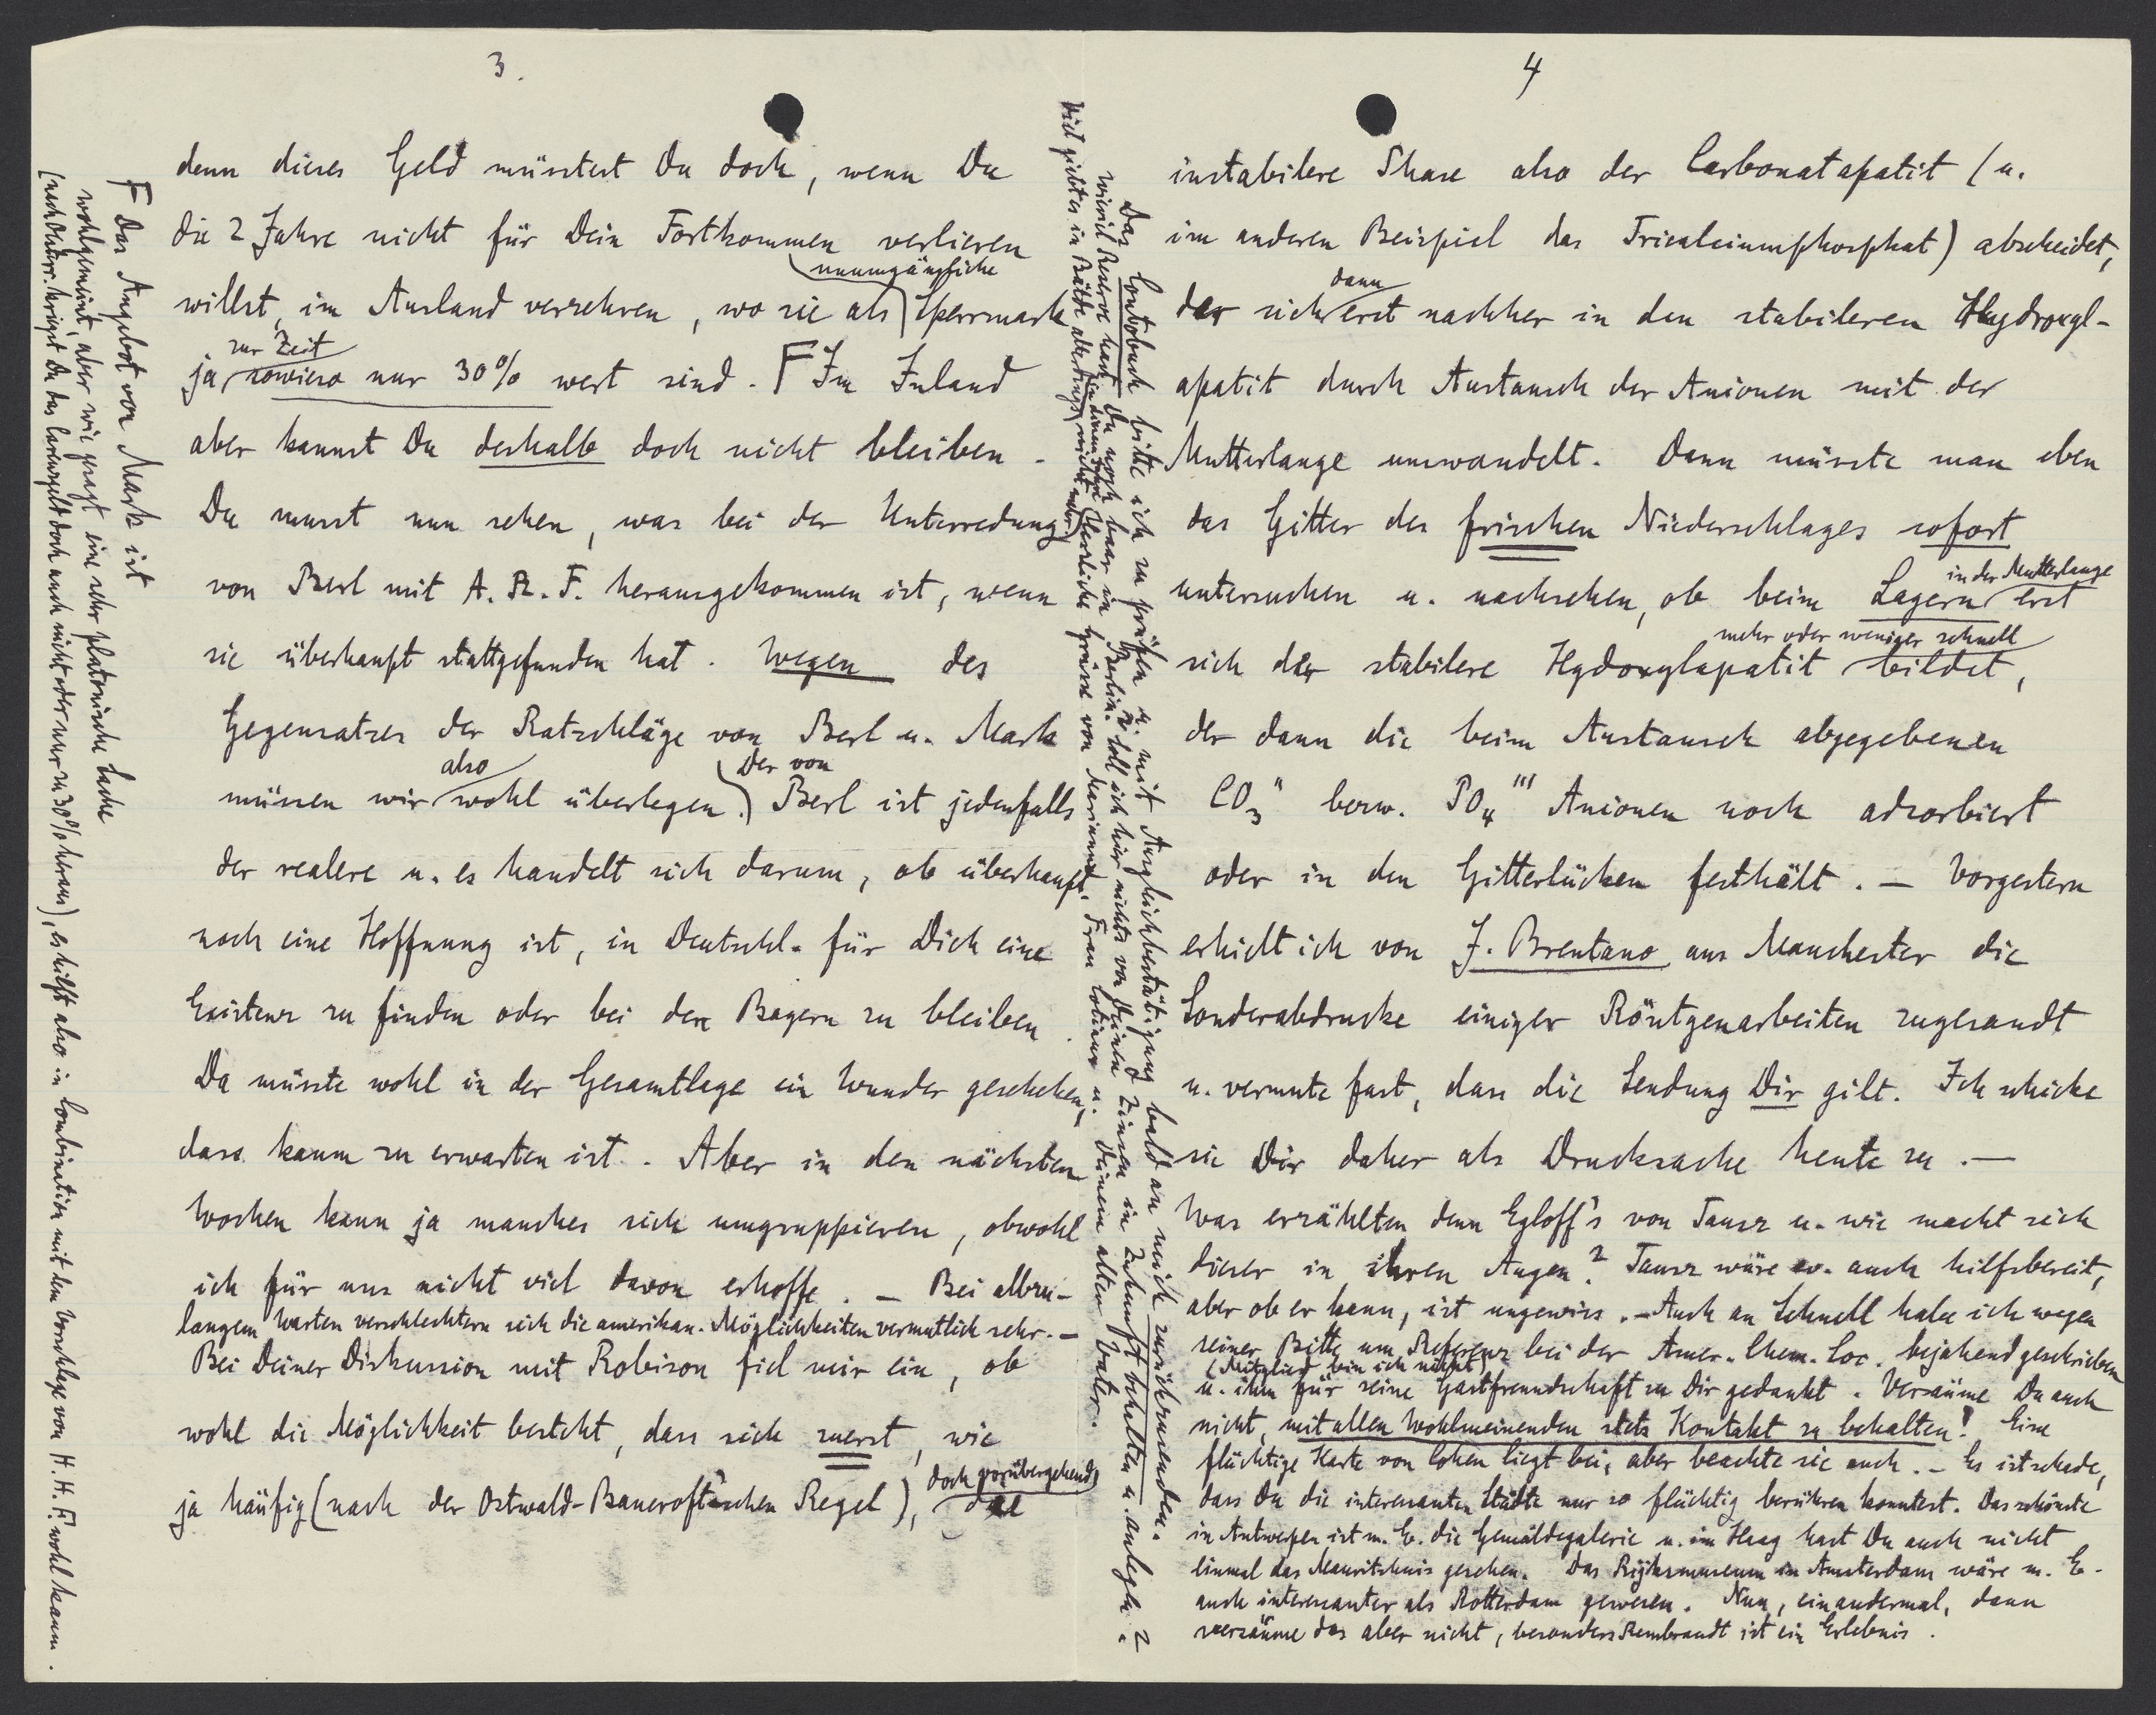 3.
denn dieses Geld müsstest Du doch, wenn Du
die 2 Jahre nicht für Dein Fortkommen verlieren
unumgängliche
willst, im Ausland verzehren, wo sie als Sperrmark
zur Zeit
ja sowieso nur 30% wert sind. F Im Inland
aber kannst Du deshalb doch nicht bleiben.
Du musst nun sehen, was bei der Unterredung
von Berl mit A. R. F. herausgekommen ist, wenn
sie überhaupt stattgefunden hat. Wegen des
Gegensatzes der Ratschläge von Berl u. Mark
also der von
müssen wir wohl überlegen. Berl ist jedenfalls
der realere u. es handelt sich darum, ob überhaupt
noch eine Hoffnung ist, in Deutschl. für Dich eine
Existenz zu finden oder bei den Bayern zu bleiben.
Da müsste wohl in der Gesamtlage ein Wunder geschehen,
dass kaum zu erwarten ist. Aber in den nächsten
Wochen kann ja manches sich umgruppieren, obwohl
ich für uns nicht viel davon erhoffe. – Bei allzu-
langem Warten verschlechtern sich die amerikan. Möglichkeiten vermutlich sehr. –
Bei Deiner Diskussion mit Robison fiel mir ein, ob
wohl die Möglichkeit besteht, dass sich zuerst, wie
doch vorübergehend
ja häufig (nach der Ostwald-Bancroft'schen Regel), die
F Das Angebot von Mark ist
wohlgemeint, aber wie gesagt eine sehr platonische Sache
(nach Österr. kriegst Du das Ladurgelt doch auch nicht oder nur zu 30% heraus), es hilft also in Combination mit dem Vorschlage von H. H. F. wohl kaum.
4
instabilere Phase also der Carbonatapatit (u.
im anderen Beispiel das Tricalciumphosphat) abscheidet,
dann
der sich erst nachher in den stabileren Hydroxyl-
apatit durch Austausch der Anionen mit der
Mutterlange umwandelt. Dann müsste man eben
das Gitter des frischen Niederschlages sofort
in der Mutterlauge
untersuchen u. nachsehen, ob beim Lagern erst
mehr oder weniger schnell
sich der stabilere Hydoxylapatit bildet,
der dann die beim Austausch abgegebenen
CO₃'' bezw. PO₄''' Anionen noch adsorbiert
oder in den Gitterlücken festhält. – Vorgestern
erhielt ich von J. Brentano aus Manchester die
Sonderabdrucke einiger Röntgenarbeiten zugesandt
u. vermute fast, dass die Sendung Dir gilt. Ich schicke
sie Dir daher als Drucksache heute zu. –
Was erzählten denn Egloff's von Tausz u. wie macht sich
dieser in ihren Augen? Tausz wäre ev. auch hilfsbereit,
aber ob er kann, ist ungewiss. – Auch an Schnell habe ich wegen
seiner Bitte um Referenz bei der Amer. Chem. Soc. bejahend geschrieben
(Mitglied bin ich nicht)
u. ihm für seine Gastfreundschaft zu Dir gedankt. Versäume Du auch
nicht, mit allen Wohlmeinenden stets Kontakt zu behalten! Eine
flüchtige Karte von Cohen liegt bei, aber beachte sie auch. – Es ist schade,
dass Du die interessanten Städte nur so flüchtig berühren konntest. Das schönste
in Antwerpen ist m. E. die Gemäldegalerie u. im Haag hast Du auch nicht
einmal das Mauritshuis gesehen. Das Rijksmuseum in Amsterdam wäre m. E.
auch interessanter als Rotterdam gewesen. Nun, ein andermal, dann
versäume das aber nicht, besonders Rembrandt ist ein Erlebnis.
Das Contobuch bitte ich zu prüfen u. mit Ausgleichbestätigung bald an mich zurückzusenden.
Wieviel Reserve hast Du noch baar in Berlin? Soll ich hier nichts von Deinen Zinsen in Zukunft behalten u. anlegen?
Viel gibt es in Bälde allerdings nicht mehr. Herzliche Grüsse von Marianne, Frau Lotiane u. Deinem alten Vater.